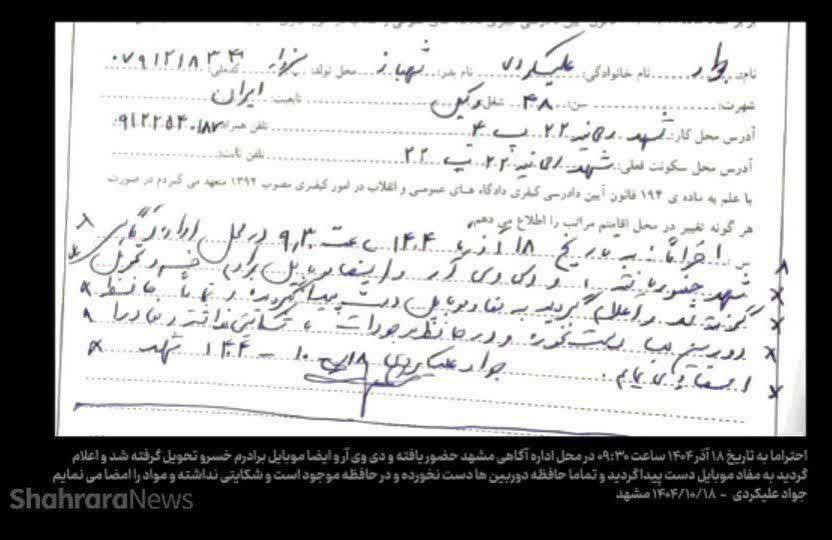 نام: جواد نام خانوادگی: علیکردی نام پدر: شهباز محل تولد: سبزوار کدملی: ۰۷۹۱۲۱۸۳۴۱
شهرت: سن: ۴۸ شغل: وکیل تابعیت: ایران
آدرس محل کار: مشهد ۲۲ پ ۴ تلفن همراه: ۹۱۲۲۵۴۰۱۸۷
آدرس محل سکونت فعلی: مشهد ۲۲ پ ۲۲ تلفن ثابت:
با علم به ماده ی ۱۹۴ قانون آیین دادرسی کیفری دادگاه های عمومی و انقلاب در امور کیفری مصوب ۱۳۹۲ متعهد می گردم در صورت
هر گونه تغییر در محل اقامتم مراتب را اطلاع می دهم
س: احتراماً به تاریخ ۱۸ آذر ۱۴۰۴ ساعت ۹:۳۰ در محل اداره آگاهی
مشهد حضور یافته و دی وی آر و ایضا موبایل برادرم خسرو تحویل
گرفته شد و اعلام گردید به مفاد موبایل دست پیدا گردید و تماما حافظه
دوربین ها دست نخورده و در حافظه موجود است و شکایتی نداشته و مفاد را
امضا می نمایم. جواد علیکردی ۱۸ - ۱۰ - ۱۴۰۴ مشهد
احتراما به تاریخ ۱۸ آذر ۱۴۰۴ ساعت ۰۹:۳۰ در محل اداره آگاهی مشهد حضور یافته و دی وی آر و ایضا موبایل برادرم خسرو تحویل گرفته شد و اعلام
گردید به مفاد موبایل دست پیدا گردید و تماما حافظه دوربین ها دست نخورده و در حافظه موجود است و شکایتی نداشته و مواد را امضا می نمایم
جواد علیکردی - ۱۴۰۴/۱۰/۱۸ مشهد
ShahraraNews